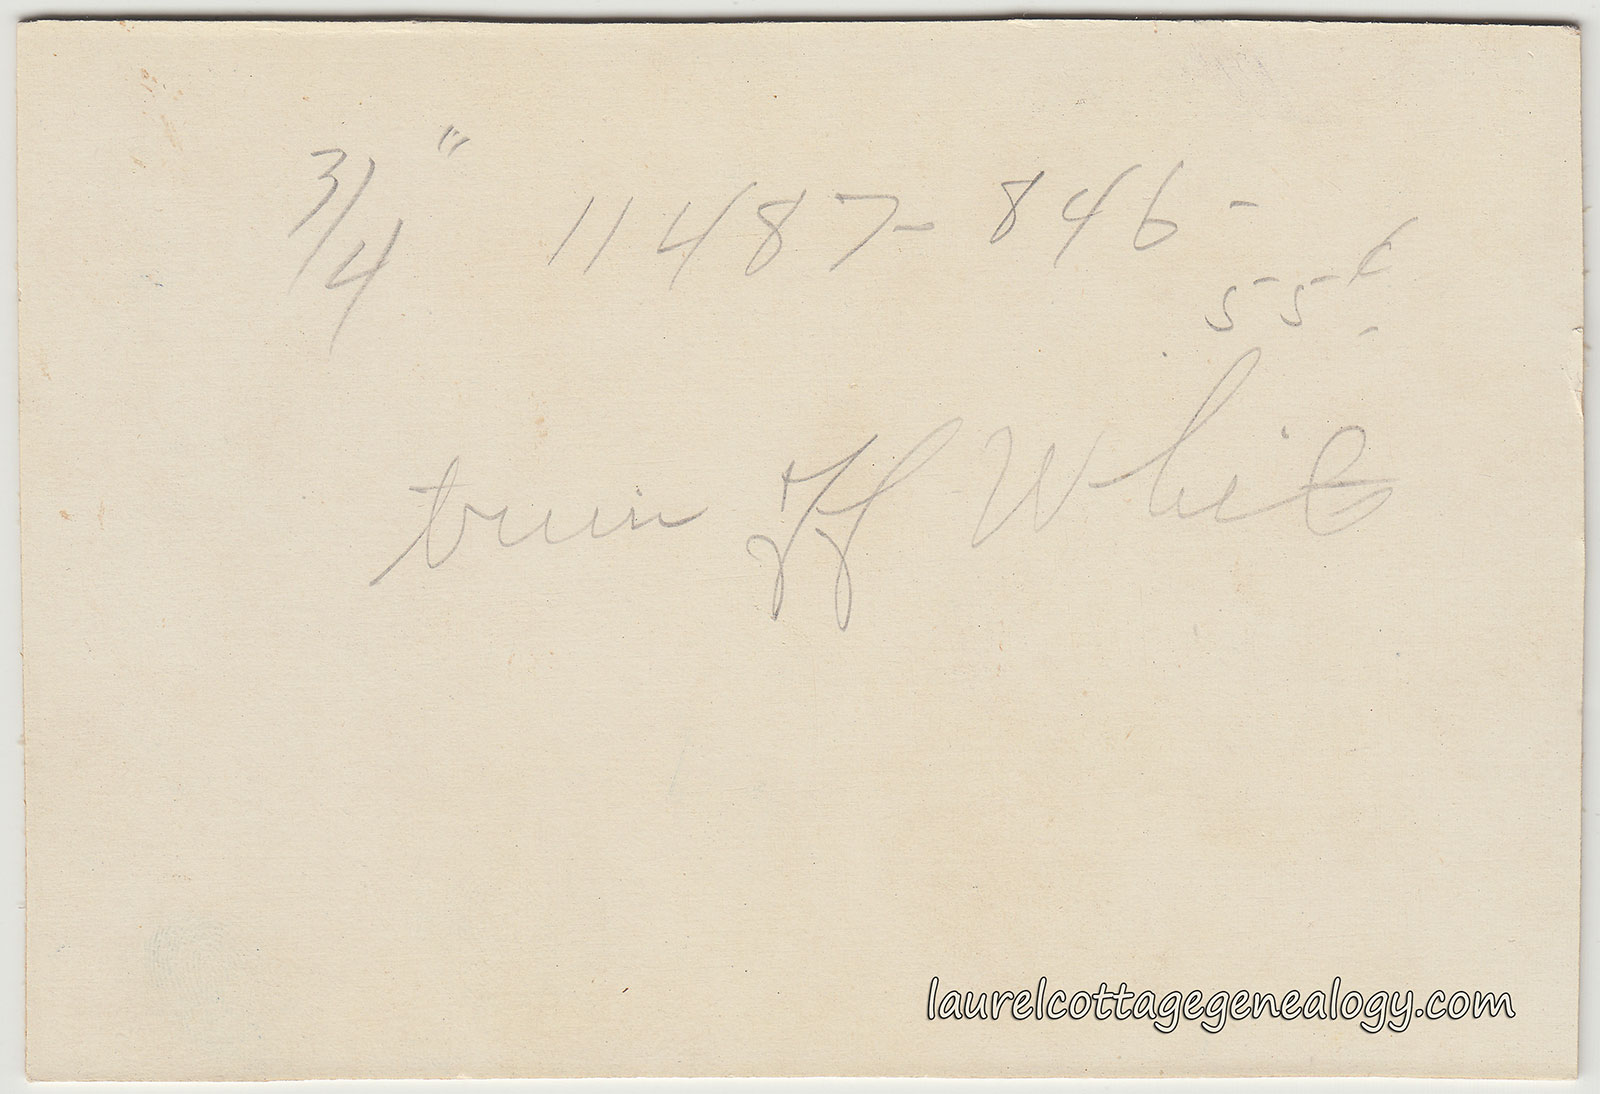 3/4" 11487- 846-
55¢
trim off White
laurelcottagegenealogy.com